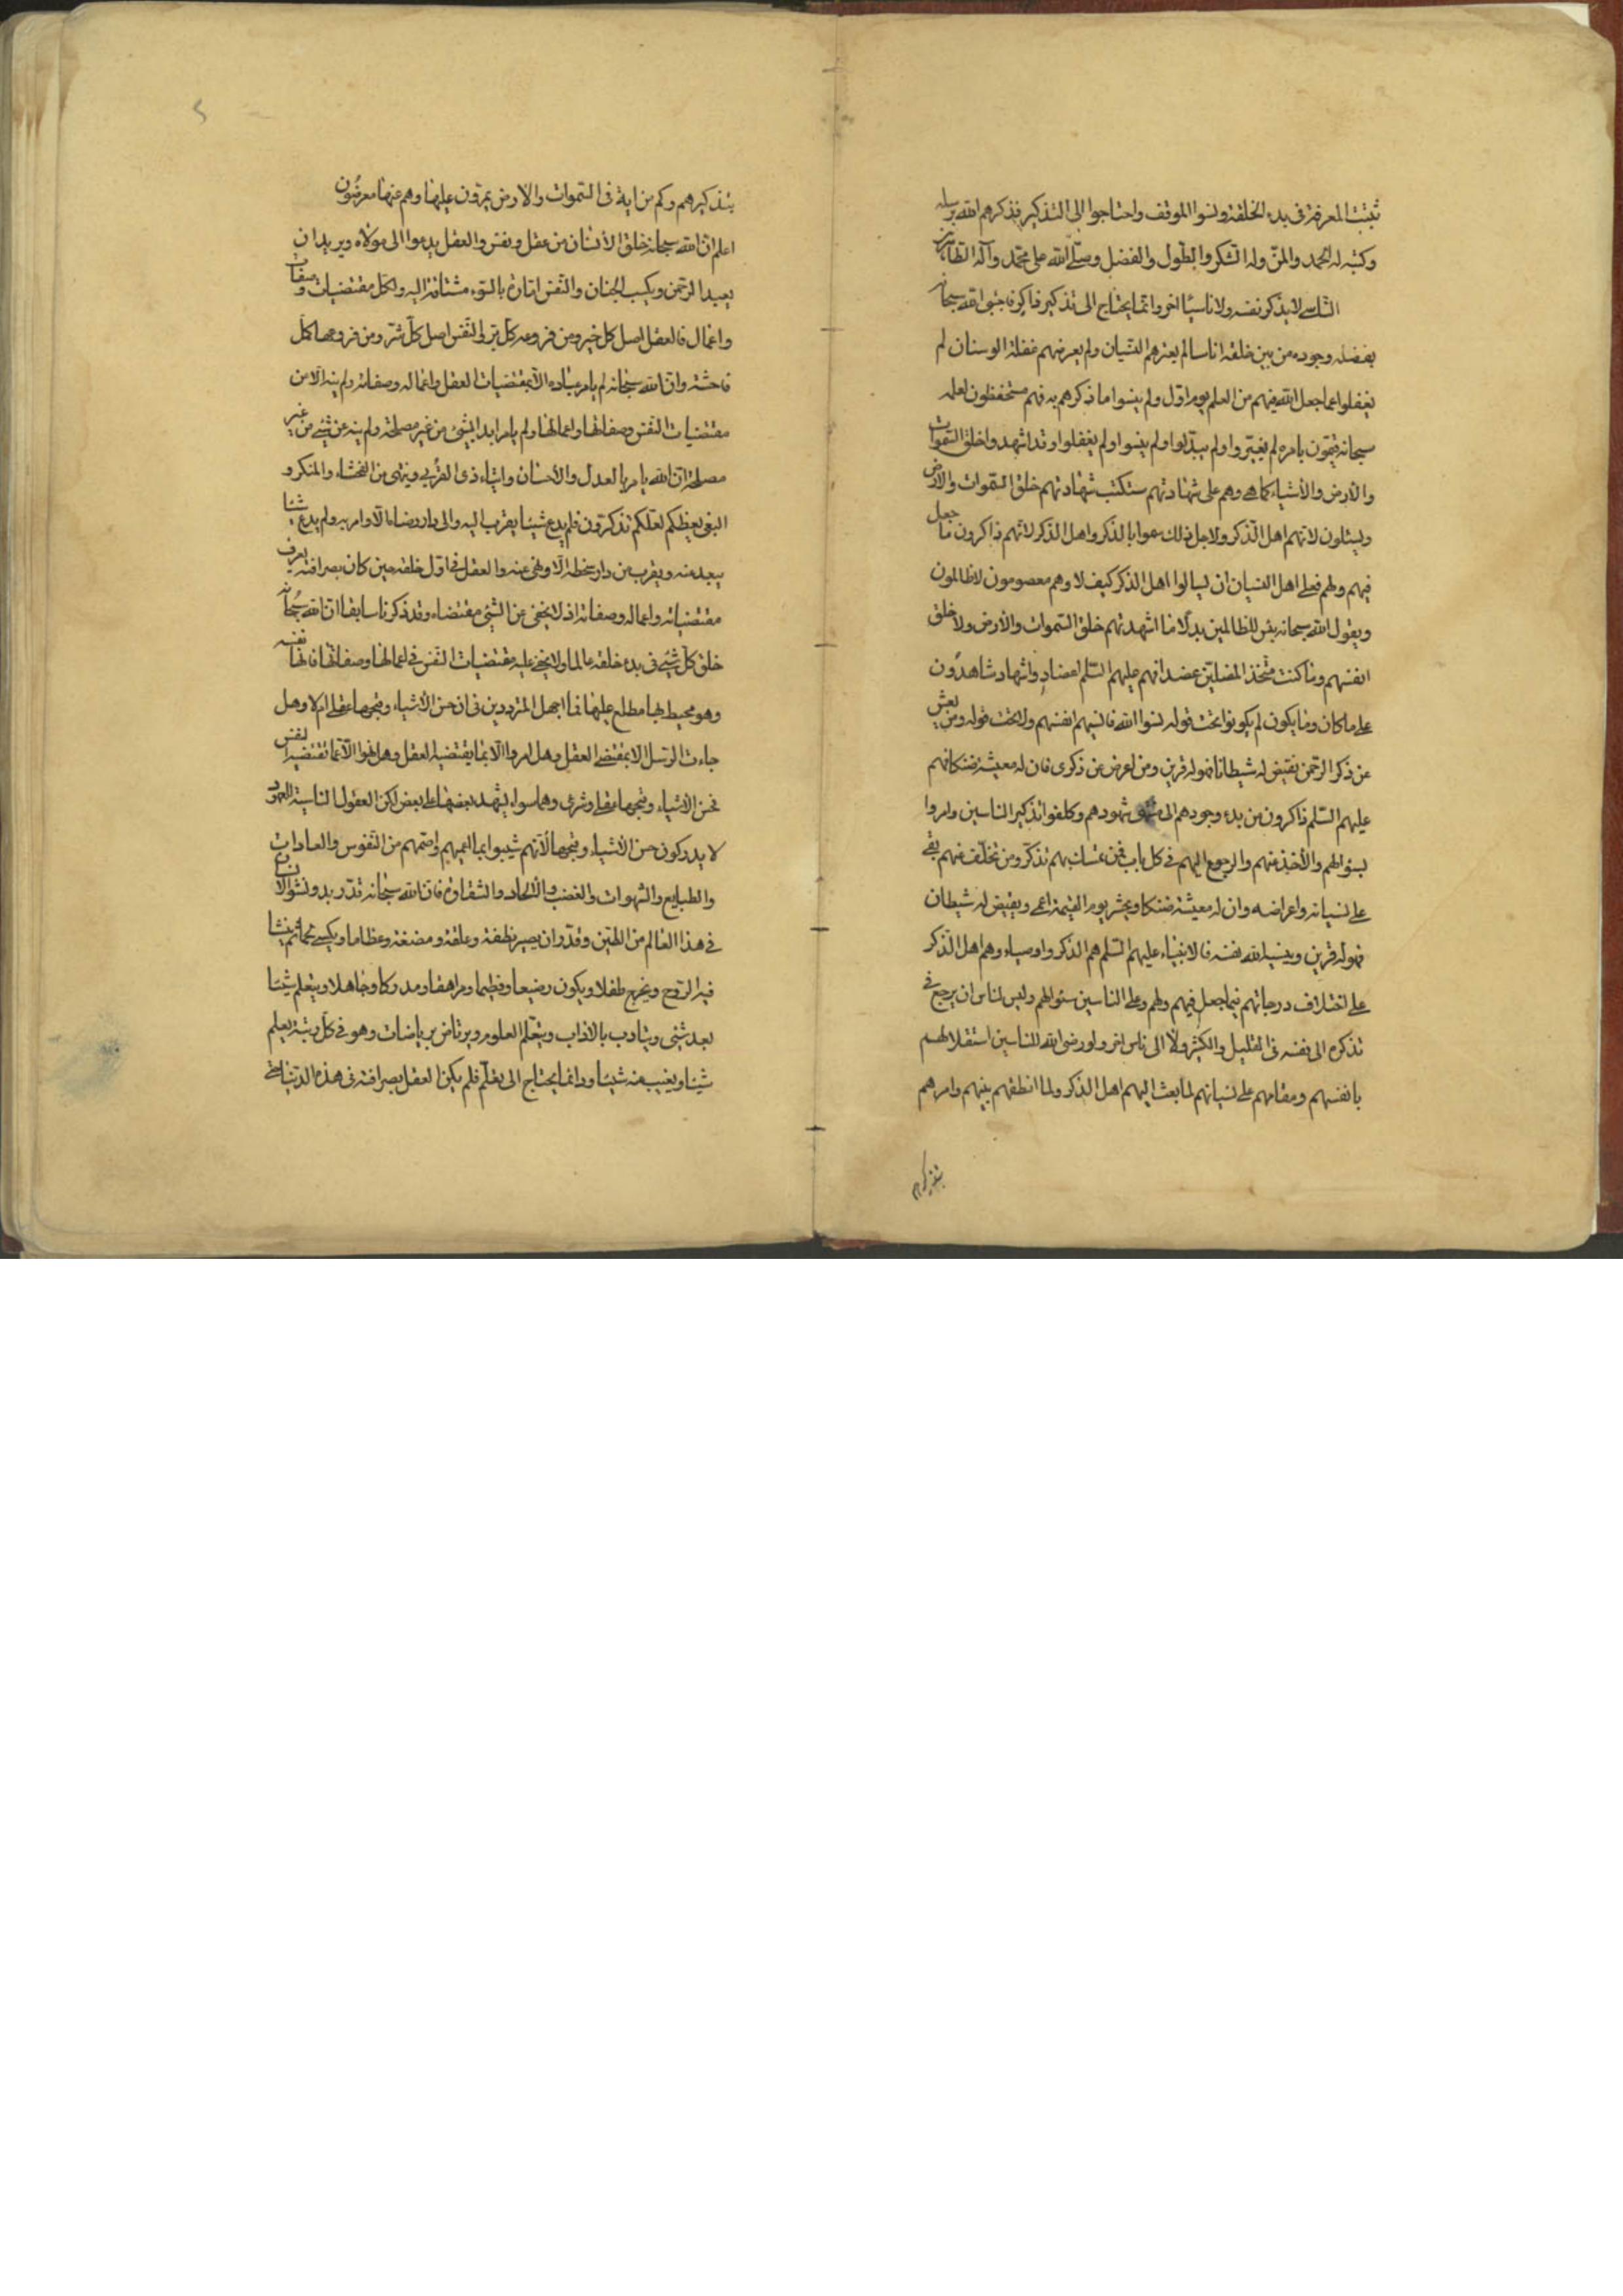 ثبتت المعرفة فى بدء الخلقة ونسوا الموقف واحتاجوا الى التذكير فذكرهم الله برسله
وكتبه له الحمد والمنّ وله الشكر والطول والفضل وصلّى الله على محمّد وآله الطاهرين
الناسى لا يذكر نفسه ولا ناسيا اخر وانما يحتاج الى تذكير ذاكر فاجتبى الله سبحانه
بفضله وجوده من بين خلقه اناسا لم يعترهم النسيان ولم يعرضهم غفلة الوسنان لم
يغفلوا عما جعل الله فيهم من العلم يوم اوّل ولم ينسوا ما ذكرهم به فهم مستحفظون لعلمه
سبحانه قيّمون بامره لم يغيّروا ولم يبدّلوا ولم ينسوا ولم يغفلوا وقد اشهدوا خلق السموات
والارض والأشياء كما هى وهم على شهادتهم ستكتب شهادتهم خلق السموات والارض
ويسئلون لانهم اهل الذكر ولاجل ذلك سموا بالذكر واهل الذكر لانهم ذاكرون ما جعل
فيهم ولهم فعلى اهل النسيان ان يسالوا اهل الذكر كيف لا وهم معصومون لا ظالمون
ويقول الله سبحانه بئس للظالمين بدلًا ما اشهدتهم خلق السموات والأرض ولا خلق
انفسهم وما كنت متّخذ المضلين عضدا فهم عليهم السّلم اعضاد واشهاد شاهدون
على ما كان وما يكون لم يكونوا تحت قوله نسوا الله فانسيهم انفسهم ولا تحت قوله ومن يعش
عن ذكر الرحمن نقيض له شيطانا فهو له قرين ومن اعرض عن ذكرى فان له معيشة ضنكا فهم
عليهم السّلم ذاكرون من بدء وجودهم الى شهودهم وكلفوا تذكير الناسين وامروا
بسؤالهم والأخذ منهم والرجوع اليهم فى كل باب فمن تمسك بهم تذكّر ومن تخلّف عنهم بقى
على نسيانه واعراضه وان له معيشة ضنكا ويحشر يوم القيمة اعمى ويقيض له شيطان
فهو له قرين وينسيه الله نفسه فالانبياء عليهم السّلم هم الذكر واوصياءهم اهل الذكر
على اختلاف درجاتهم فيما جعل فيهم ولهم وعلى الناسين سئوالهم وليس لناس ان يرجع فى
تذكره الى نفسه فى القليل والكثير ولا الى ناس اخر ولو رضى الله للناسين استقلالهم
بانفسهم ومقامهم على نسيانهم لما بعث اليهم اهل الذكر ولما انطقهم بينهم وامرهم
بتذكيرهم
بتذكيرهم وكم من اية فى السّموات والارض يمرّون عليها وهم عنها معرضون
اعلم انّ الله سبحانه خلق الأنسان من عقل ونفس والعقل يدعوا الى مولاه ويريد ان
يعبد الرّحمن ويكسب الجنان والنّفس امّارة بالسّوء مشتاقة اليه ولكل مقتضيات وصفات
واعمال فالعقل اصل كل خير ومن فروعه كل برّ والنّفس اصل كلّ شرّ ومن فروعها كل
فاحشة وان الله سبحانه لم يامر عباده الّا بمقتضيات العقل واعماله وصفاته ولم ينه الّا من
مقتضيات النفس وصفاتها واعمالها ولم يامر ابدا بشئ من غير مصلحة ولم ينه عن شئ من غير
مصلحة ان الله يامر بالعدل والأحسان وايتاء ذى القربى وينهى عن الفحشاء والمنكر و
البغى يعظكم لعلّكم تذكرون فلم يدع شيئا يقرب اليه والى دار رضاه الّا وامر به ولم يدع شيئا
يبعد منه ويقرب من دار سخطه الّا ونهى عنه والعقل فى اوّل خلقه حين كان بصرافته يعرف
مقتضياته واعماله وصفاته اذ لا يخفى عن الشئ مقتضاه وقد ذكرنا سابقا ان الله سبحانه
خلق كلّ شئ فى بدء خلقه عالما ولا يخفى عليه مقتضيات النّفس فى اعمالها وصفاتها فانها نفسه
وهو محيط بها مطلع عليها فما اجهل المترددين فى ان حسن الأشياء وقبحها عقلى ام لا وهل
جاءت الرّسل الا بمقتضى العقل وهل امروا الّا بما يقتضيه العقل وهل نهوا الّا عما تقتضيه النفس
فحسن الأشياء وقبحها عقلى وشرعى وهما سواء يشهد بعضها على بعض لكن العقول الناسية للعهود
لا يدركون حسن الأشياء وقبحها لأنهم شيبوا بما اعميهم واصمهم من النّفوس والعادات
والطبايع والشهوات والغضب والألحاد والشقاوة فان الله سبحانه قدّر بدو نشو الانسان
فى هذا العالم من الطين وقدّر ان يصير نطفة وعلقة ومضغة وعظاما ويكسى لحما ثم ينشا
فيه الرّوح ويخرج طفلا ويكون رضيعا وفطيما ومراهقا ومدركا وجاهلا ويتعلم شيئا
بعد شئ ويتادب بالاداب ويتعلّم العلوم ويرتاض برياضات وهو فى كل رتبة يعلم
شيئا ويغيب عنه شيئا ودائما يحتاج الى تعلّم فلم يكن العقل بصرافته فى هذه الدنيا